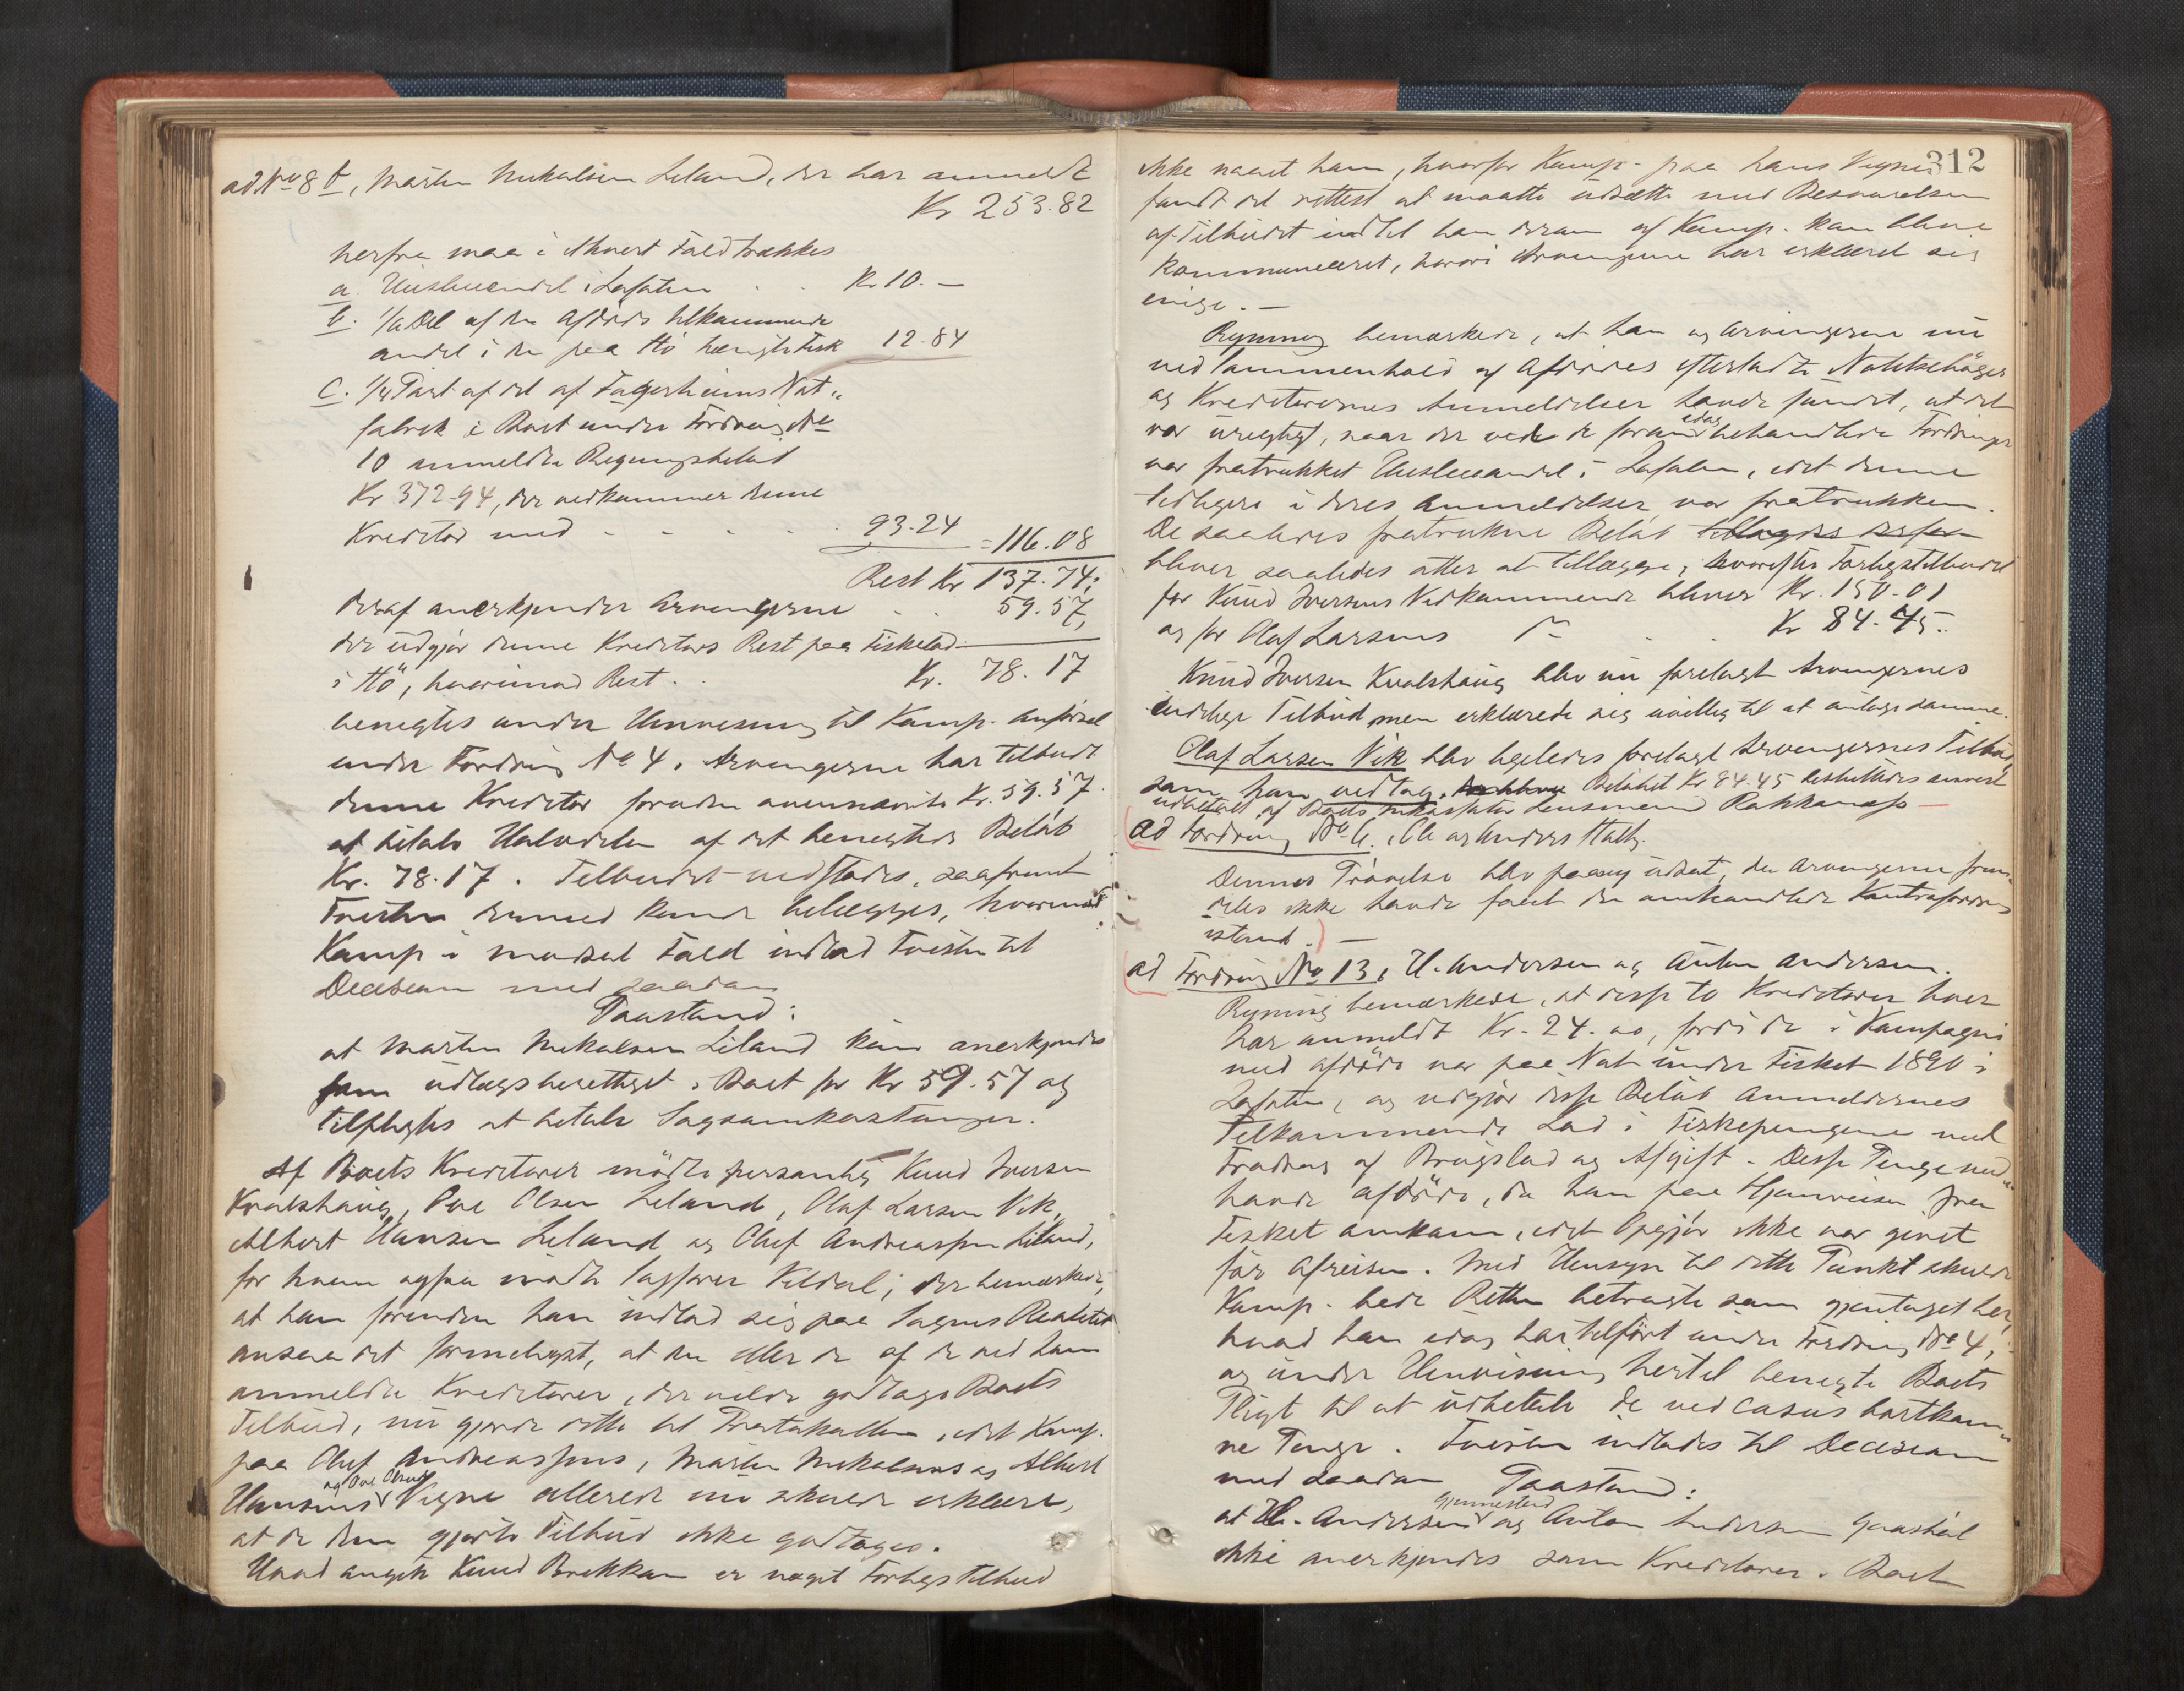 ad No 8 b, Mårten Mikalsen Leland, der har anmeldt
Kr 253.82
herfra maa i ethvert Fald trækkes
a. Huslueandel i Lofoten . . Kr 10.—
b. 1/6 Del af den Afdøde tilkommende
andel i den paa Hö hængte Fisk 12.84
c. 1/4 Part af det af Fagerheims Not-
fabrik i Boet under Fordring No
10 anmeldte Regningsbeløb
Kr 372.94, der vedkommer denne
Kreditor med . . . . 93.24 = 116.08
Rest Kr 137.74;
deraf anerkjender Arvingerne . . 59.57,
der udgjør denne Kreditors Rest paa Fiskelod
i Hö, hvorimod Rest . . Kr. 78.17
benegtes under Henvisning til Kamp. Anførsel
under Fordring No 4. Arvingerne har tilbudt
denne Kreditor foruden ovennævnte Kr. 59.57
at betale Halvdelen af det benegtede Beløb
Kr. 78.17. Tilbudet vedstodes, saafremt
Tvisten dermed kunde bilægges, hvorimod
Kamp i modsat Fald indlod Tvisten til
Decision med saadan
Paastand:
at Mårten Mikalsen Leland kun anerkjendes
som udlægsberettiget i Boet for Kr 59.57 og
tilpligtes at betale Sagsomkostninger.
Af Boets Kreditorer mödte personlig Knud Iversen
Kvalshaug, Ove Olsen Leland, Olaf Larsen Vik,
Albert Hansen Leland og Oluf Andreassen Leland,
for hvem ogsaa mødte Sagfører Veldal; der bemærkede,
at han forinden han indlod sig paa Sagens Realitet
ansaa det formeligst, at den eller de af de ved ham
anmeldte Kreditorer, der vilde godtage Boets
Tilbud, nu gjorde dette til Protokollen, idet Kamp.
paa Oluf Andreassens, Mårten Mikalsens og Albert
Hansens og Ove Olsens Vegne allerede nu skulde erklære,
at de dem gjorte Tilbud ikke godtages.
Hvad angik Knud Brekkan er noget Forligstilbud
312
ikke naaet ham, hvorfor Kamp. paa hans Vegne
fandt det rettest at maatte udsætte med Besvarelsen
af Tilbudet indtil han deraf af Kamp. kan blive
kommuniceret, hvori Arvingerne har erklæret sig
enige.—
Ryning bemærkede, at han og Arvingerne nu
ved Sammenhold af Afdödes efterladte Notitsbøger
og Kreditorernes Anmeldelser havde fundet, at det
var urigtigt, naar der ved de foran idag behandlede Fordringer
var fratrukket Huslueandel i Lofoten, idet denne
tidligere i deres Anmeldelser var fratrukken.
De saaledes fratrukne Beløb tillægges derfor
bliver saaledes atter at tillægge, hvorefter Forligstilbudet
for Knud Iversens Vedkommende bliver Kr. 150.01
og for Olaf Larsens . . Kr 84.45.
Knud Iversen Kvalshaug blev nu forelagt Arvingernes
endelige Tilbud, men erklærede sig uvillig til at antage samme.
Olaf Larsen Vik blev ligeledes forelagt Arvingernes Tilbud,
som han vedtog. Beløbet Kr 84.45 besluttedes
udbetalt af Boets Inkassator Lensmand
ad Fordring No 6, Ole og Anders Halty.
Dennes Prövelse blev paany udsat, da Arvingerne frem-
deles ikke havde faaet den omhandlede Kontrafordring
istand.—
ad Fordring No 13, H. Andersen og Anton Andersen.
Ryning bemærkede, at disse to Kreditorer hver
har anmeldt Kr. 24.00, fordi de i Kompagni
med afdøde var paa Not under Fisket 1890 i
Lofoten, og udgjør disse Beløb Anmeldernes
Tilkommende Lod i Fiskepengene med
Fradrag af Brugslod og Afgift. Disse Penge med-
havde afdøde, da han paa Hjemreisen fra
Fisket omkom, idet Opgjør ikke var gjort
før Afreisen. Med Hensyn til dette Punkt skulde
Kamp. bede Retten betragte som gjentaget her,
hvad han idag har tilført under Fordring No 4,
og under Henvisning hertil benegte Boets
Pligt til at udbetale de ved casus bortkom-
ne Penge. Tvisten indlodes til Decision
med saadan Paastand:
at H. Andersen og Anton Andersen
ikke anerkjendes som Kreditorer i Boet